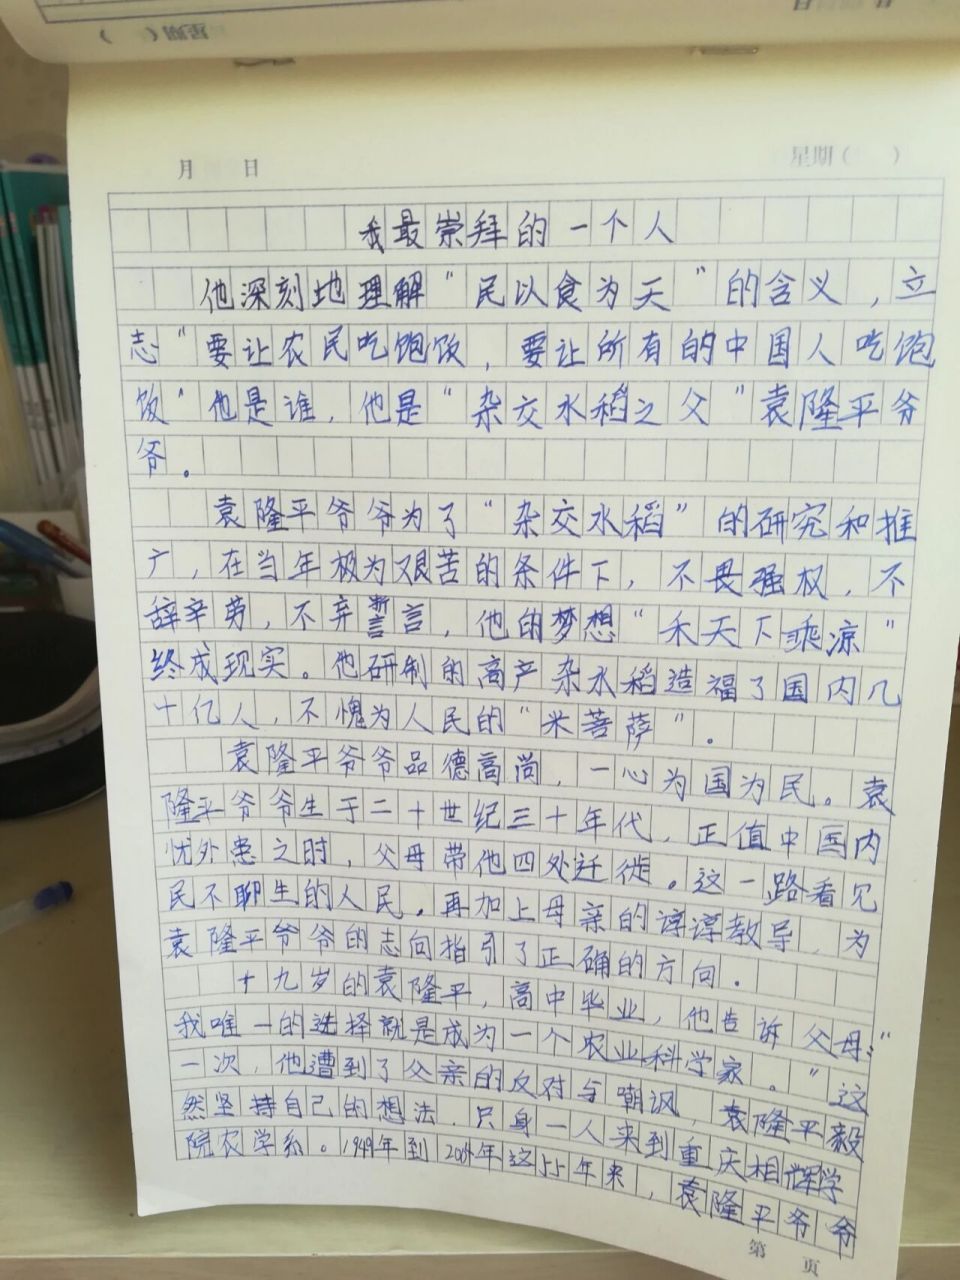 月 日 星期( )
我最崇拜的一个人
他深刻地理解“民以食为天”的含义，立
志“要让农民吃饱饭，要让所有的中国人吃饱
饭”他是谁，他是“杂交水稻之父”袁隆平爷
爷。
袁隆平爷爷为了“杂交水稻”的研究和推
广，在当年极为艰苦的条件下，不畏强权，不
辞辛劳，不弃誓言，他的梦想“禾天下乘凉”
终成现实。他研制的高产杂水稻造福了国内几
十亿人，不愧为人民的“米菩萨”。
袁隆平爷爷品德高尚，一心为国为民。袁
隆平爷爷生于二十世纪三十年代，正值中国内
忧外患之时，父母带他四处迁徙。这一路看见
民不聊生的人民。再加上母亲的谆谆教导，为
袁隆平爷爷的志向指引了正确的方向。
十九岁的袁隆平，高中毕业，他告诉父母：“
我唯一的选择就是成为一个农业科学家。”这
一次，他遭到了父亲的反对与嘲讽，袁隆平毅
然坚持自己的想法，只身一人来到重庆相辉学
院农学系。1949年到2004年这55年来，袁隆平爷爷
第 页